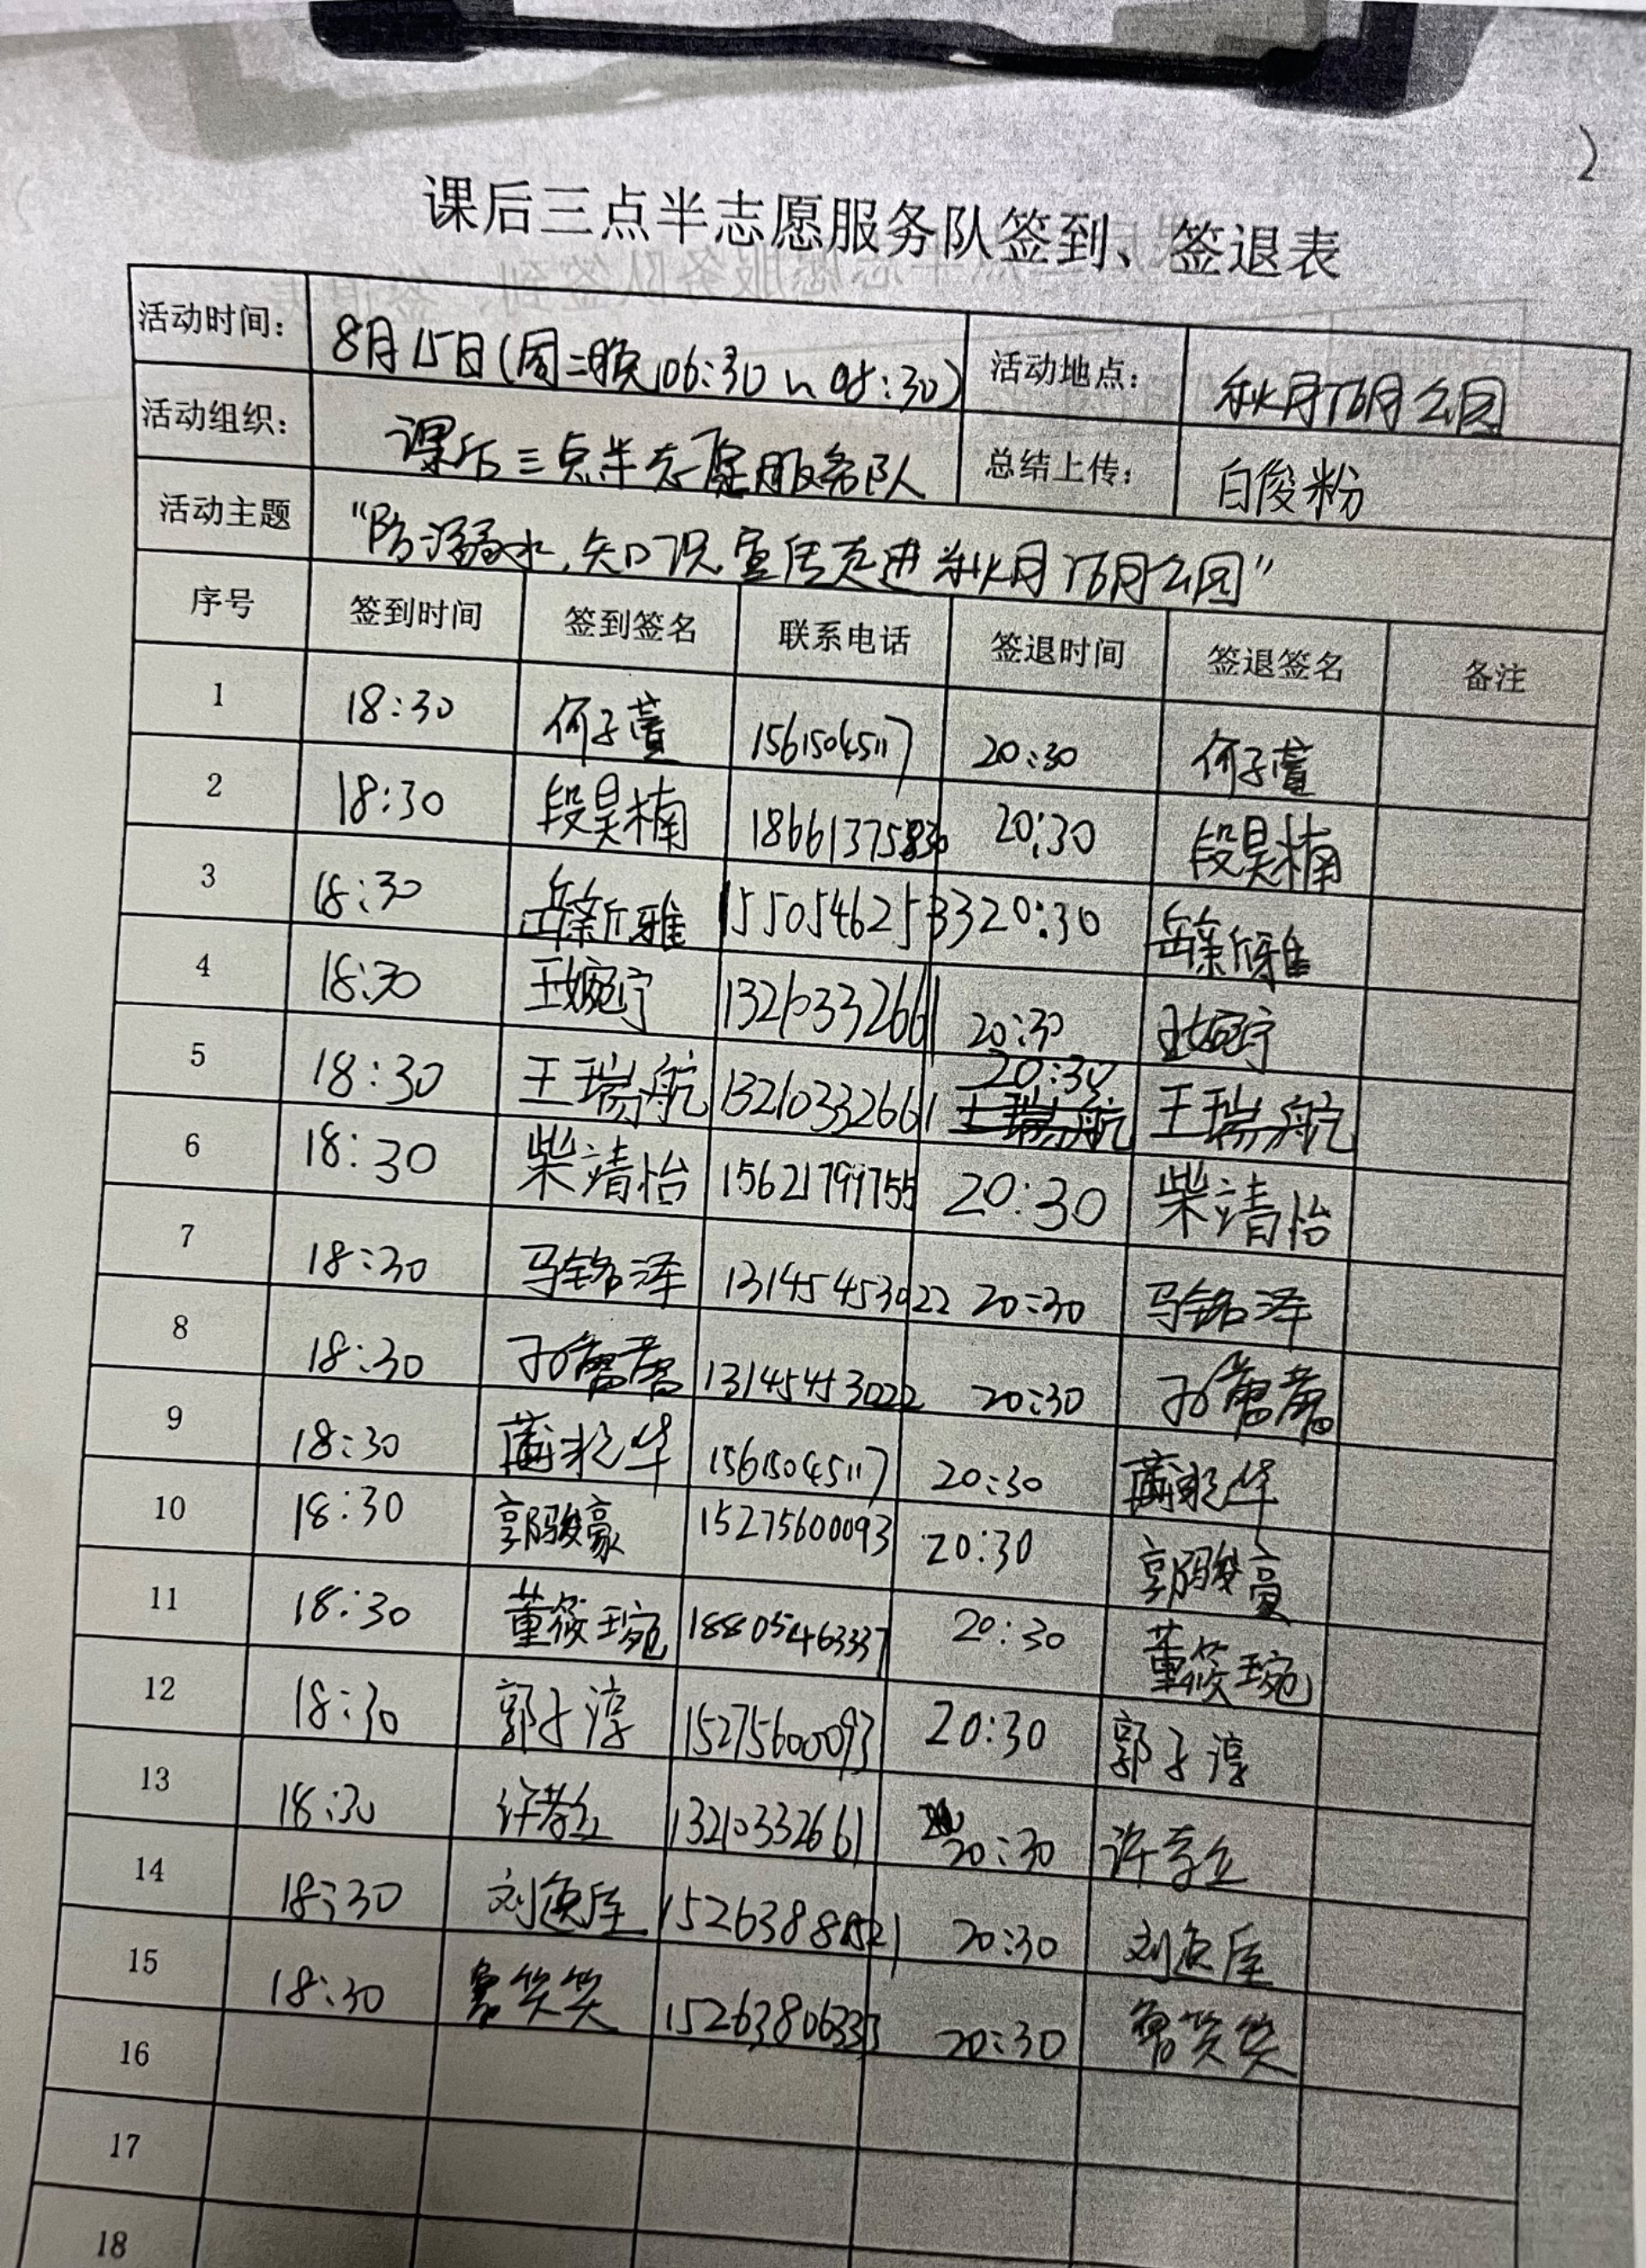 课后三点半志愿服务队签到、签退表
活动时间： 8月15日(周二晚06:30~08:30) 活动地点： 秋月明月公园
活动组织： 课后三点半志愿服务队 总结上传： 白俊粉
活动主题 “防溺水,知识宣传走进秋月明月公园”
序号 签到时间 签到签名 联系电话 签退时间 签退签名 备注
1 18:30 何子萱 15615045117 20:30 何子萱
2 18:30 段昊楠 18661375830 20:30 段昊楠
3 18:30 岳新雅 15505462533 20:30 岳新雅
4 18:30 王婉宁 13210332661 20:30 王婉宁
5 18:30 王瑞航 13210332661 20:30 王瑞航
6 18:30 柴靖怡 15621799755 20:30 柴靖怡
7 18:30 马铭泽 13145453022 20:30 马铭泽
8 18:30 13145453022 20:30
9 18:30 15615045117 20:30
10 18:30 郭骏豪 15275600093 20:30 郭骏豪
11 18:30 董筱琬 18805463337 20:30 董筱琬
12 18:30 郭子淳 15275600093 20:30 郭子淳
13 18:30 13210332661 20:30
14 18:30 20:30
15 18:30 20:30
16
17
18